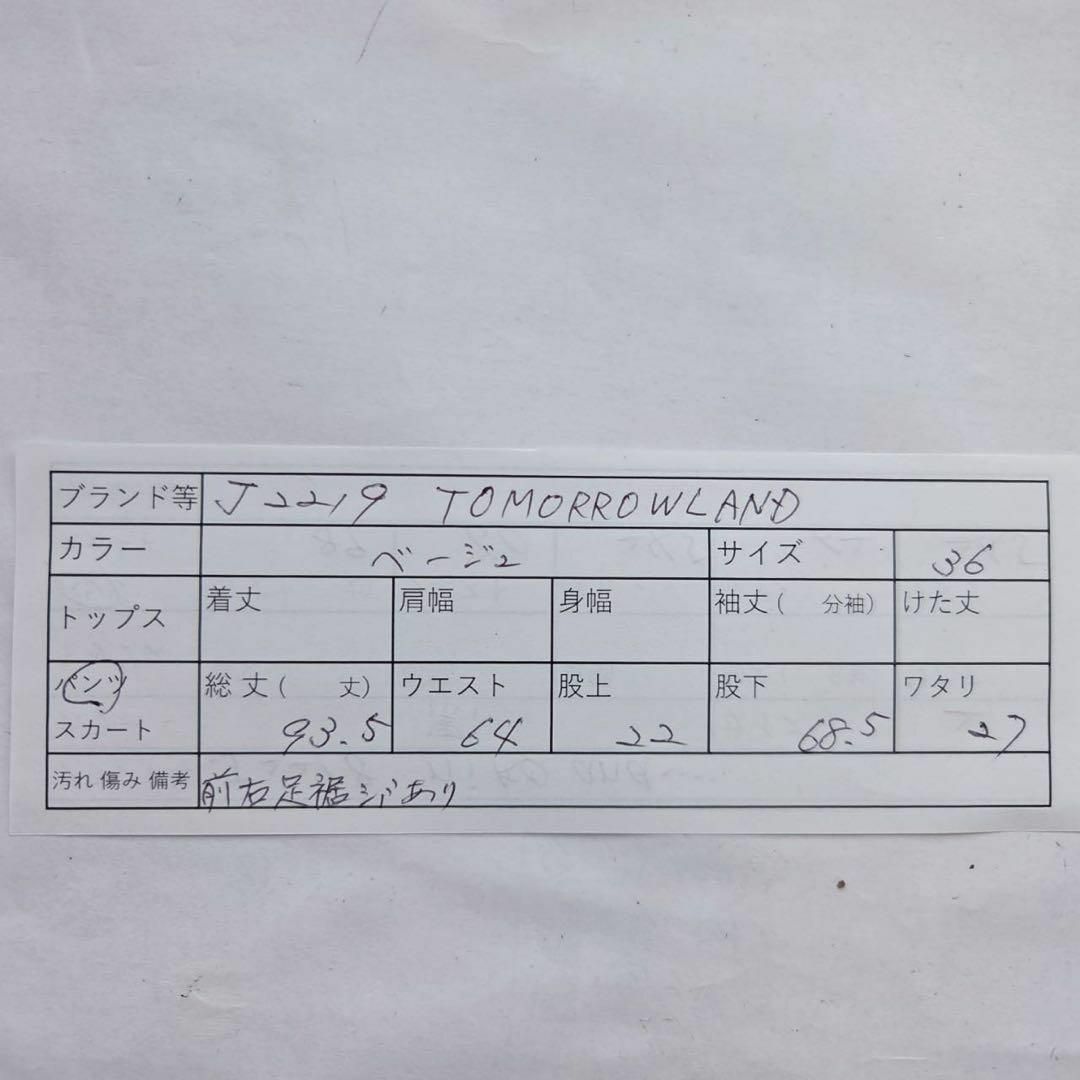 ブランド等 J2219 TOMORROWLAND
カラー ベージュ サイズ 36
トップス 着丈 肩幅 身幅 袖丈( 分袖) けた丈
パンツ 総丈( 丈) ウエスト 股上 股下 ワタリ
スカート 93.5 64 22 68.5 27
汚れ 傷み 備考 前右足裾シミあり